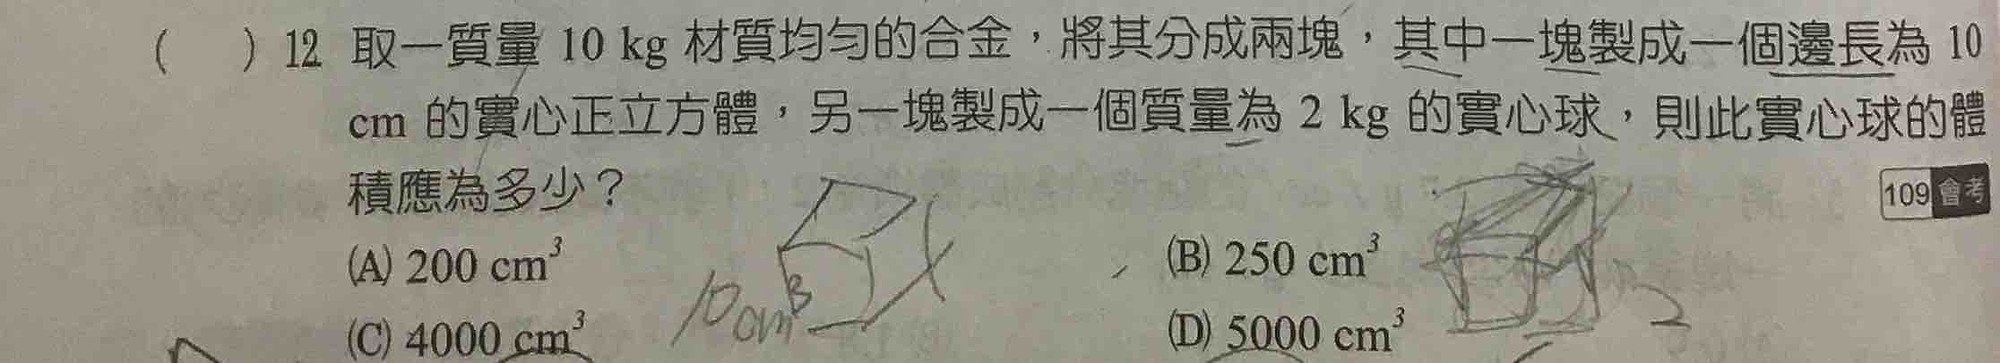 ( ) 12 取一質量 10 kg 材質均勻的合金，將其分成兩塊，其中一塊製成一個邊長為 10
cm 的實心正立方體，另一塊製成一個質量為 2 kg 的實心球，則此實心球的體
積應為多少？
109 會考
(A) 200 cm³
(B) 250 cm³
10cm³
(C) 4000 cm³
(D) 5000 cm³
2